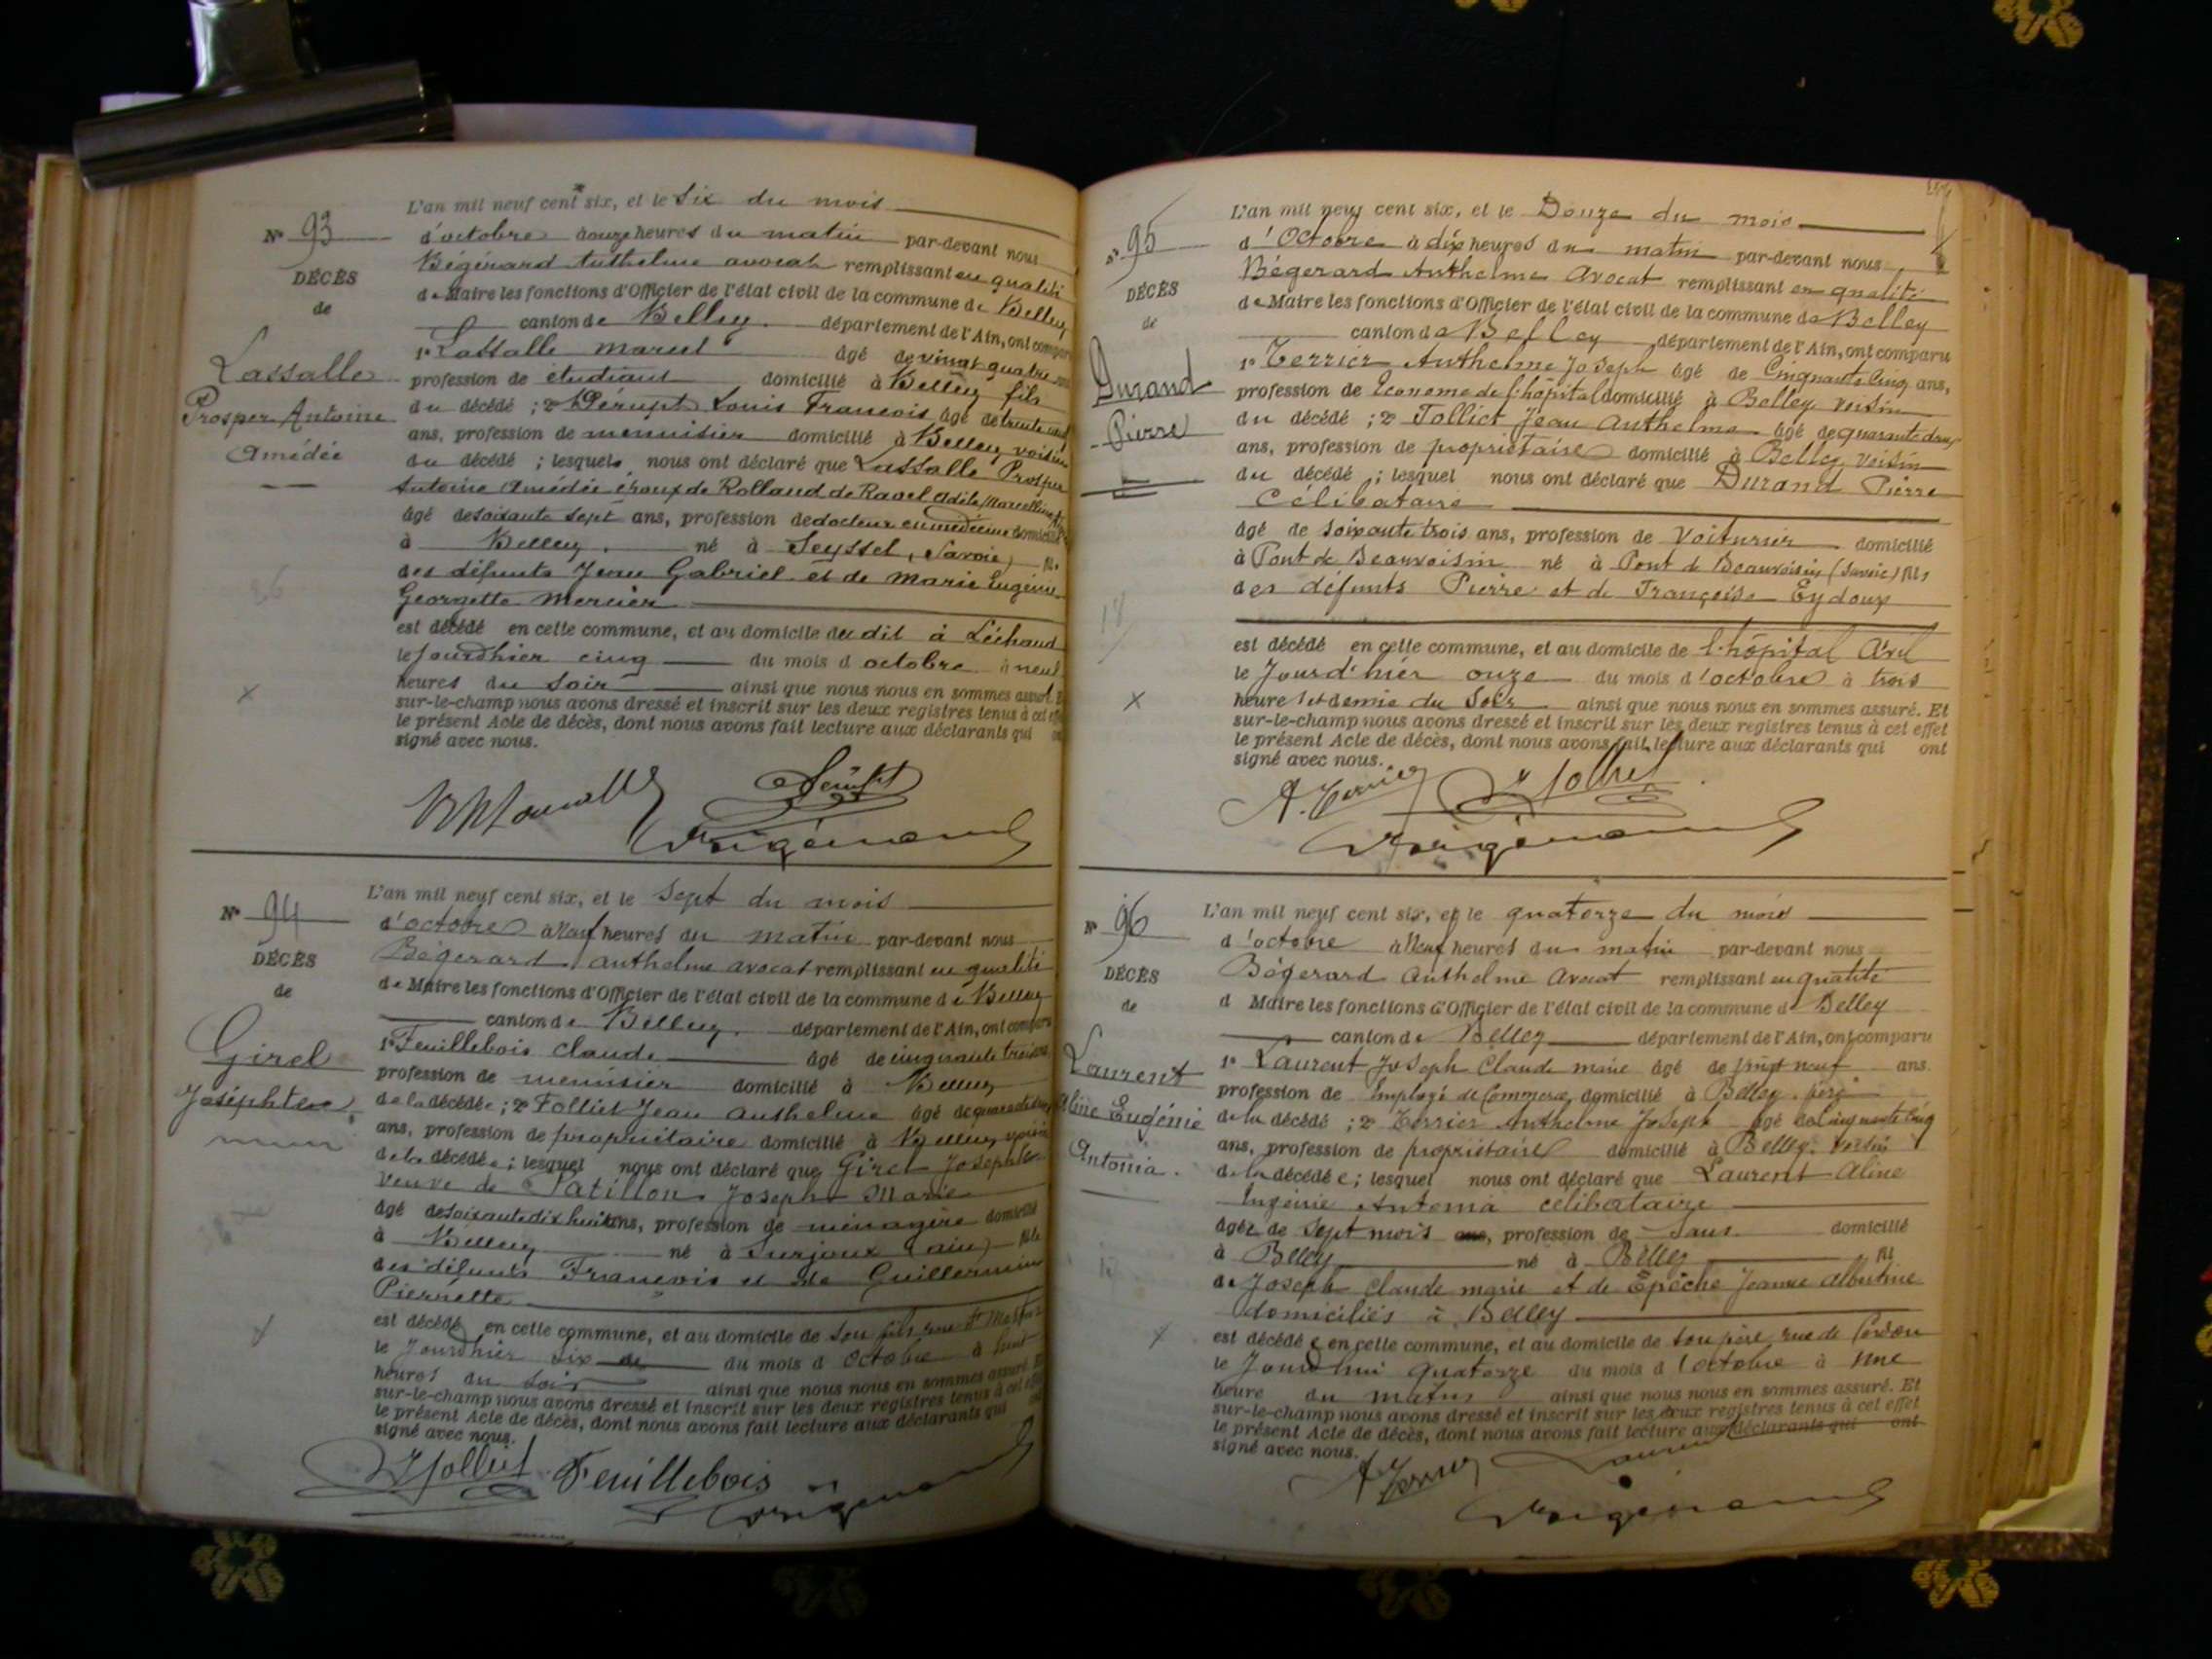 N° 93
DÉCÈS
de
Lassalle
Prosper Antoine
Amédée
L'an mil neuf cent six, et le six du mois
d'octobre à onze heures du matin par-devant nous
Bégérard Anthelme avocat remplissant en qualité
de Maire les fonctions d'Officier de l'état civil de la commune de Belley
canton de Belley département de l'Ain, ont comparu
1° Lassalle Marcel âgé de vingt quatre ans
profession de étudiant domicilié à Belley fils
du décédé ; 2° Dérupt Louis François âgé de trente
ans, profession de menuisier domicilié à Belley voisin
du décédé ; lesquels nous ont déclaré que Lassalle Prosper
Antoine Amédée époux de Rolland de Ravel Adèle Marcelline
âgé de soixante sept ans, profession de docteur en médecine domicilié
à Belley né à Seyssel (Savoie) fils
des défunts Jean Gabriel et de Marie Eugénie
Georgette Mercier
est décédé en cette commune, et au domicile du dit à Léchaud
le jourd'hier cinq du mois d'octobre à neuf
heures du soir ainsi que nous nous en sommes assuré. Et
sur-le-champ nous avons dressé et inscrit sur les deux registres tenus à cet effet
le présent Acte de décès, dont nous avons fait lecture aux déclarants qui ont
signé avec nous.
N° 94
DÉCÈS
de
Girel
Josephte
L'an mil neuf cent six, et le sept du mois
d'octobre à neuf heures du matin par-devant nous
Bégerard Anthelme avocat remplissant en qualité
de Maire les fonctions d'Officier de l'état civil de la commune de Belley
canton de Belley département de l'Ain, ont comparu
1° Feuillebois Claude âgé de cinquante trois ans
profession de menuisier domicilié à Belley
de la décédée ; 2° Folliet Jean Anthelme âgé de quarante deux
ans, profession de propriétaire domicilié à Belley voisin
de la décédée ; lesquel nous ont déclaré que Girel Josephte
veuve de Patillon Joseph Marie
âgé de soixante dix huit ans, profession de ménagère domicilié
à Belley né à Surjoux (Ain) fille
des défunts François et de Guillermin
Pierrette
est décédé en cette commune, et au domicile de son fils rue St
le jourd'hier six du mois d'octobre à huit
heures du soir ainsi que nous nous en sommes assuré. Et
sur-le-champ nous avons dressé et inscrit sur les deux registres tenus à cet effet
le présent Acte de décès, dont nous avons fait lecture aux déclarants qui ont
signé avec nous.
Folliet Feuillebois
N° 95
DÉCÈS
de
Durand
Pierre
L'an mil neuf cent six, et le Douze du mois
d'Octobre à dix heures du matin par-devant nous
Bégerard Anthelme Avocat remplissant en qualité
de Maire les fonctions d'Officier de l'état civil de la commune de Belley
canton de Belley département de l'Ain, ont comparu
1° Terrier Anthelme Joseph âgé de Cinquante Cinq ans,
profession de Econome de l'hôpital domicilié à Belley voisin
du décédé ; 2° Folliet Jean Anthelme âgé de quarante deux
ans, profession de propriétaire domicilié à Belley voisin
du décédé ; lesquel nous ont déclaré que Durand Pierre
Célibataire
âgé de soixante trois ans, profession de Voiturier domicilié
à Pont de Beauvoisin né à Pont de Beauvoisin (Savoie) fils
des défunts Pierre et de Françoise Eydoux
est décédé en cette commune, et au domicile de l'hôpital Civil
le Jourd'hier onze du mois d'octobre à trois
heures et demie du Soir ainsi que nous nous en sommes assuré. Et
sur-le-champ nous avons dressé et inscrit sur les deux registres tenus à cet effet
le présent Acte de décès, dont nous avons fait lecture aux déclarants qui ont
signé avec nous.
A. Terrier Folliet
N° 96
DÉCÈS
de
Laurent
Aline Eugénie
Antonia.
L'an mil neuf cent six, et le quatorze du mois
d'octobre à Neuf heures du matin par-devant nous
Bégerard Anthelme Avocat remplissant en qualité
d Maire les fonctions d'Officier de l'état civil de la commune de Belley
canton de Belley département de l'Ain, ont comparu
1° Laurent Joseph Claude Marie âgé de vingt neuf ans.
profession de Employé de Commerce domicilié à Belley père
de la décédé ; 2° Terrier Anthelme Joseph âgé de Cinquante Cinq
ans, profession de propriétaire domicilié à Belley voisin
de la décédée ; lesquel nous ont déclaré que Laurent Aline
Eugénie Antonia célibataire
âgée de sept mois ans, profession de Sans domicilié
à Belley né à Belley fil
de Joseph Claude Marie et de Epêche Jeanne Albertine
domiciliés à Belley
est décédée en cette commune, et au domicile de son père rue de Cordon
le Jourd'hui quatorze du mois d'octobre à une
heure du matin ainsi que nous nous en sommes assuré. Et
sur-le-champ nous avons dressé et inscrit sur les deux registres tenus à cet effet
le présent Acte de décès, dont nous avons fait lecture aux déclarants qui ont
signé avec nous.
A. Terrier Laurent